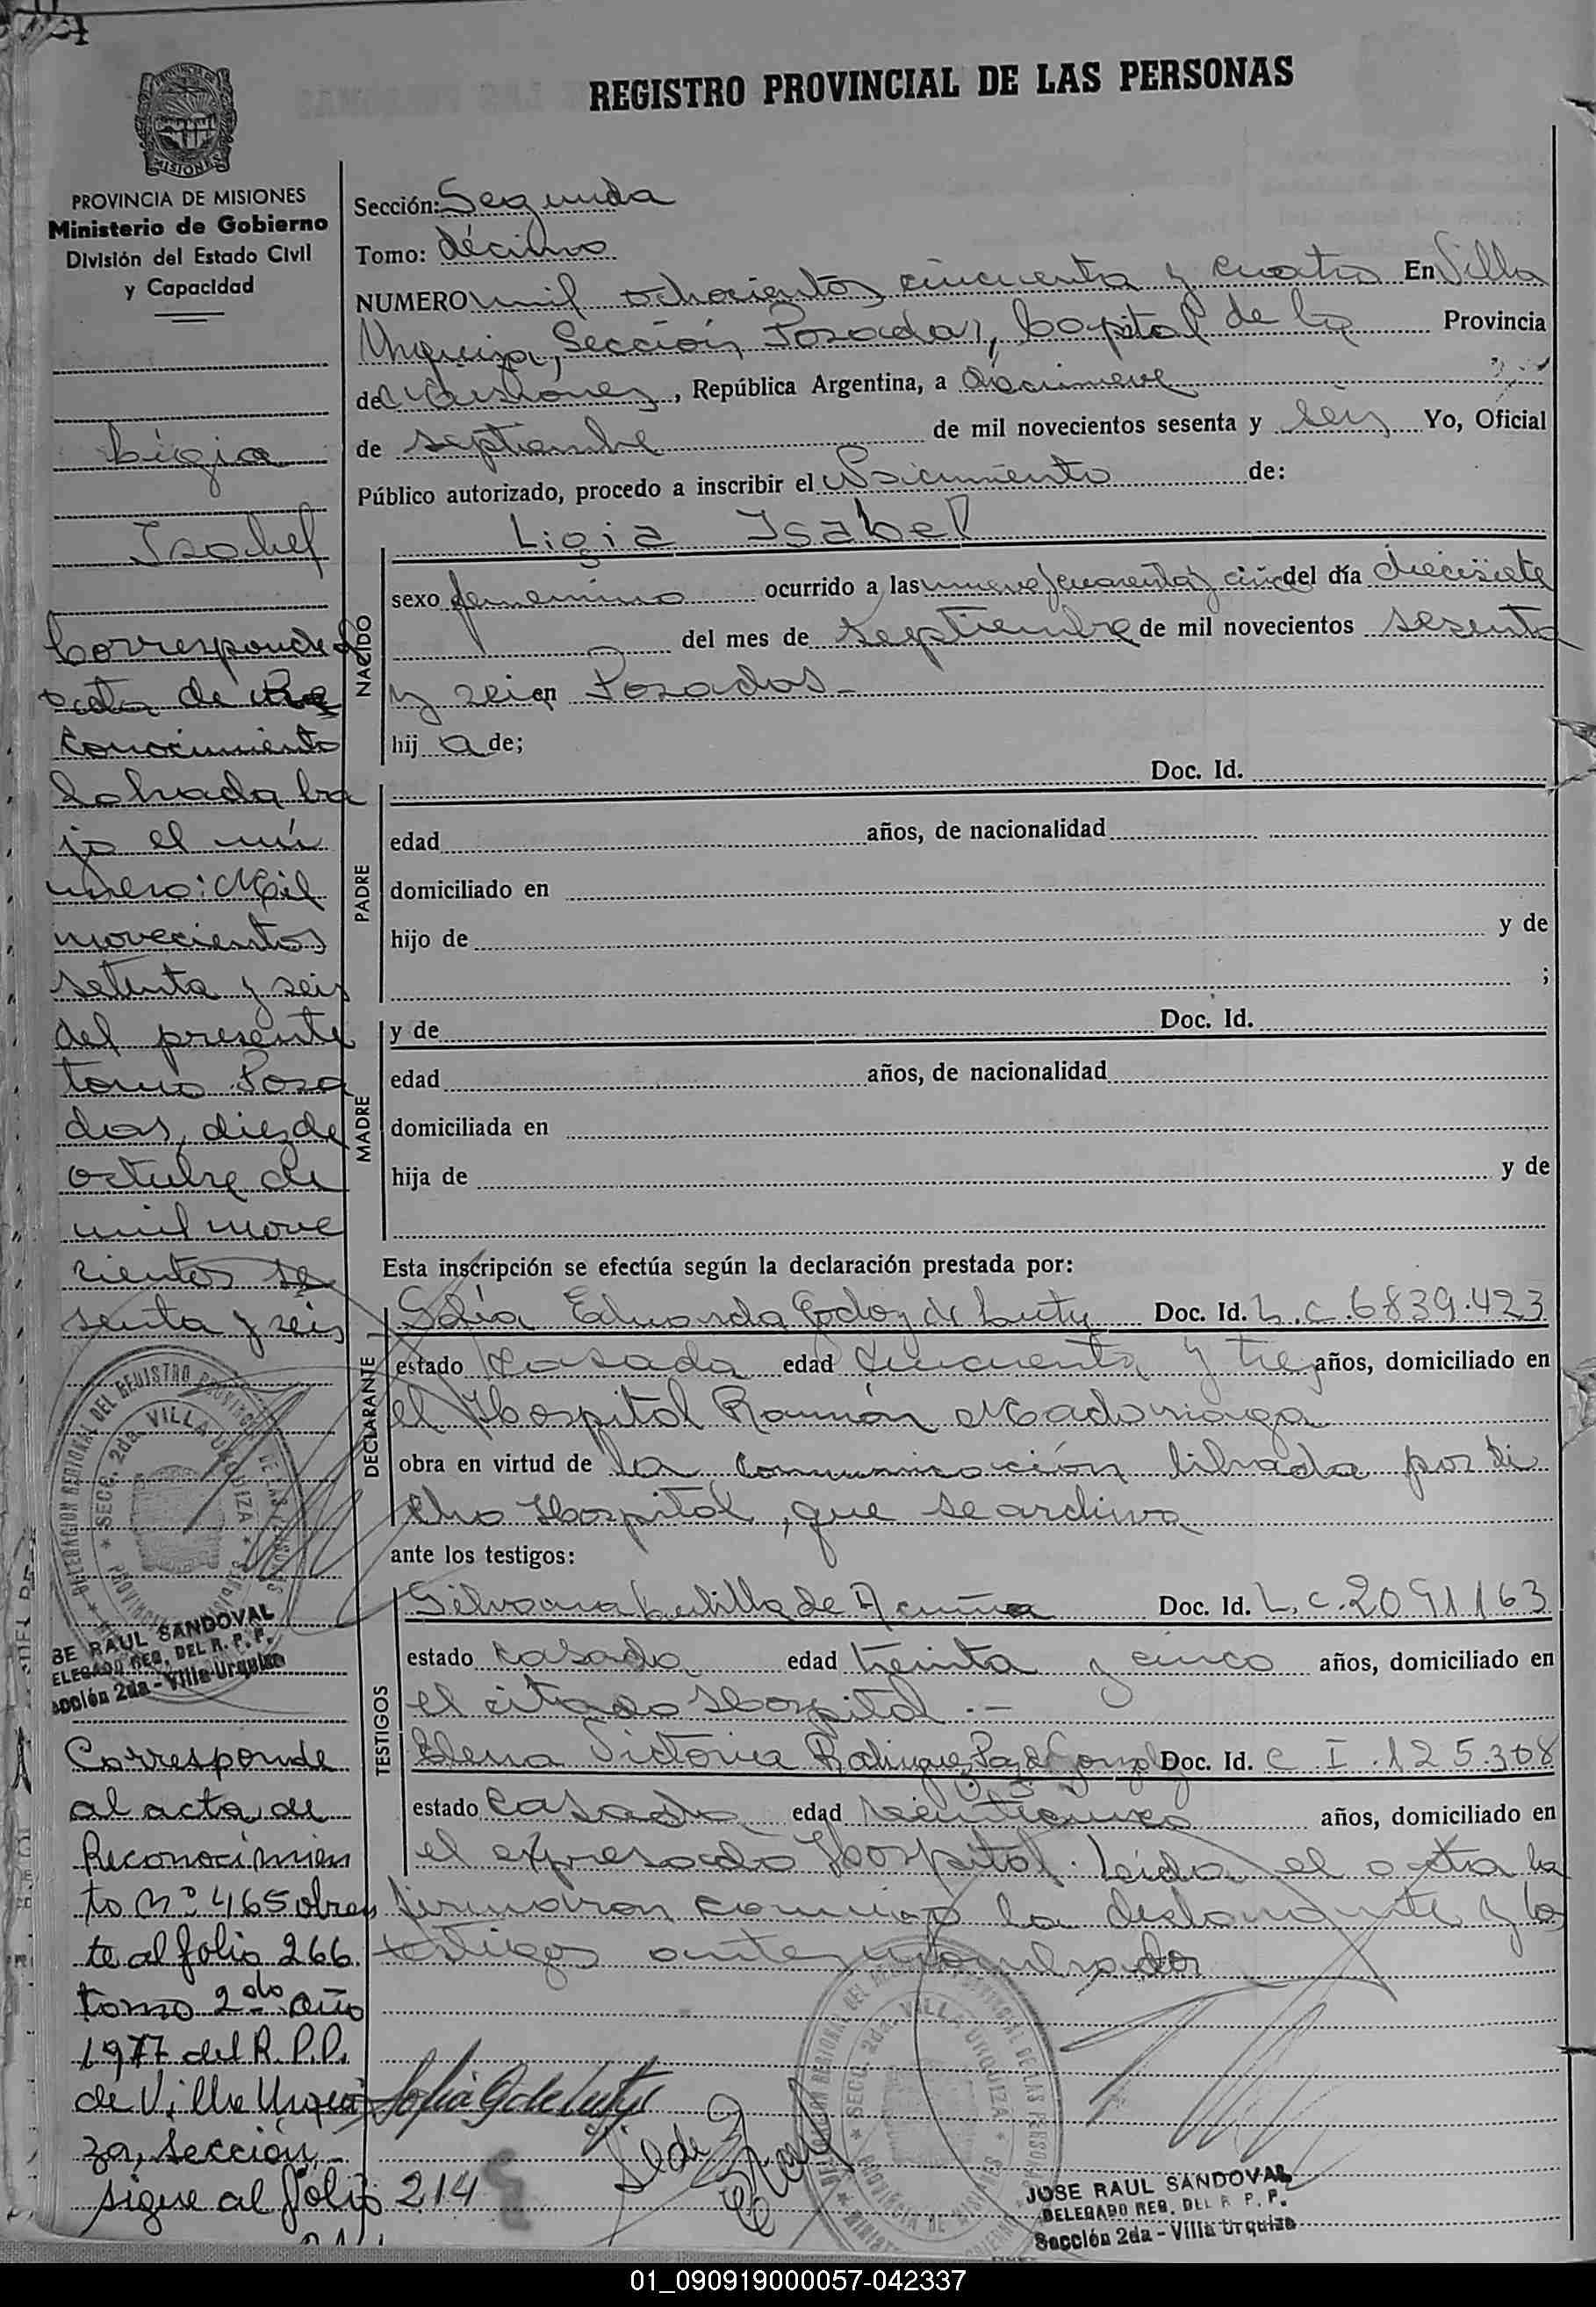 REGISTRO PROVINCIAL DE LAS PERSONAS
MISIONES
PROVINCIA DE MISIONES
Ministerio de Gobierno
División del Estado Civil
y Capacidad
Ligia
Isabel
Corresponde
acta de Re
conocimiento
labrada ba
jo el nú
mero: Mil
novecientos
setenta y seis
del presente
tomo Posa
das, diez de
octubre de
mil nove
cientos se
senta y seis
DELEGACION REGIONAL DEL REGISTRO PROVINCIAL DE LAS PERSONAS
SECC. 2da. VILLA URQUIZA
SE RAUL SANDOVAL
ELEGADO REG. DEL R. P. P.
ección 2da - Villa Urquiza
Corresponde
al acta de
Reconocimien
to Nº 465 obran
te al folio 266
tomo 2do año
1977 del R.P.P.
de Villa Urqui
za, sección
sigue al folio 214
Sección: Segunda
Tomo: décimo
NUMERO mil ochocientos cincuenta y cuatro En Villa
Urquiza, Sección Posadas, Capital de la Provincia
de Misiones, República Argentina, a diecinueve
de septiembre de mil novecientos sesenta y seis Yo, Oficial
Público autorizado, procedo a inscribir el Nacimiento de:
Ligia Isabel
NACIDO
sexo femenino ocurrido a las nueve cuarenta y cinco del día diecisiete
del mes de septiembre de mil novecientos sesenta
y seis en Posadas -
hij a de;
PADRE
Doc. Id.
edad años, de nacionalidad
domiciliado en
hijo de y de
;
MADRE
y de Doc. Id.
edad años, de nacionalidad
domiciliada en
hija de y de
Esta inscripción se efectúa según la declaración prestada por:
DECLARANTE
Eduarda Godoy de Luty Doc. Id. L.C. 6839.423
estado casada edad cincuenta y tres años, domiciliado en
el Hospital Ramón Madariaga
obra en virtud de la comunicación librada por di
cho Hospital, que se archiva
ante los testigos:
TESTIGOS
Silvana de Acuña Doc. Id. L.C. 2091163
estado casada edad treinta y cinco años, domiciliado en
el citado Hospital .-
Elena Victoria Rodriguez Paz de Doc. Id. C.I. 125.308
estado casada edad veinticinco años, domiciliado en
el expresado Hospital. Leída el acta la
firmaron conmigo la declarante y los
testigos antes nombrados
Sofia G de Luty
DELEGACION REGIONAL DEL REGISTRO PROVINCIAL DE LAS PERSONAS
SECC. 2da. VILLA URQUIZA
PROVINCIA DE MISIONES
JOSE RAUL SANDOVAL
DELEGADO REG. DEL R. P. P.
Sección 2da - Villa Urquiza
01_090919000057-042337